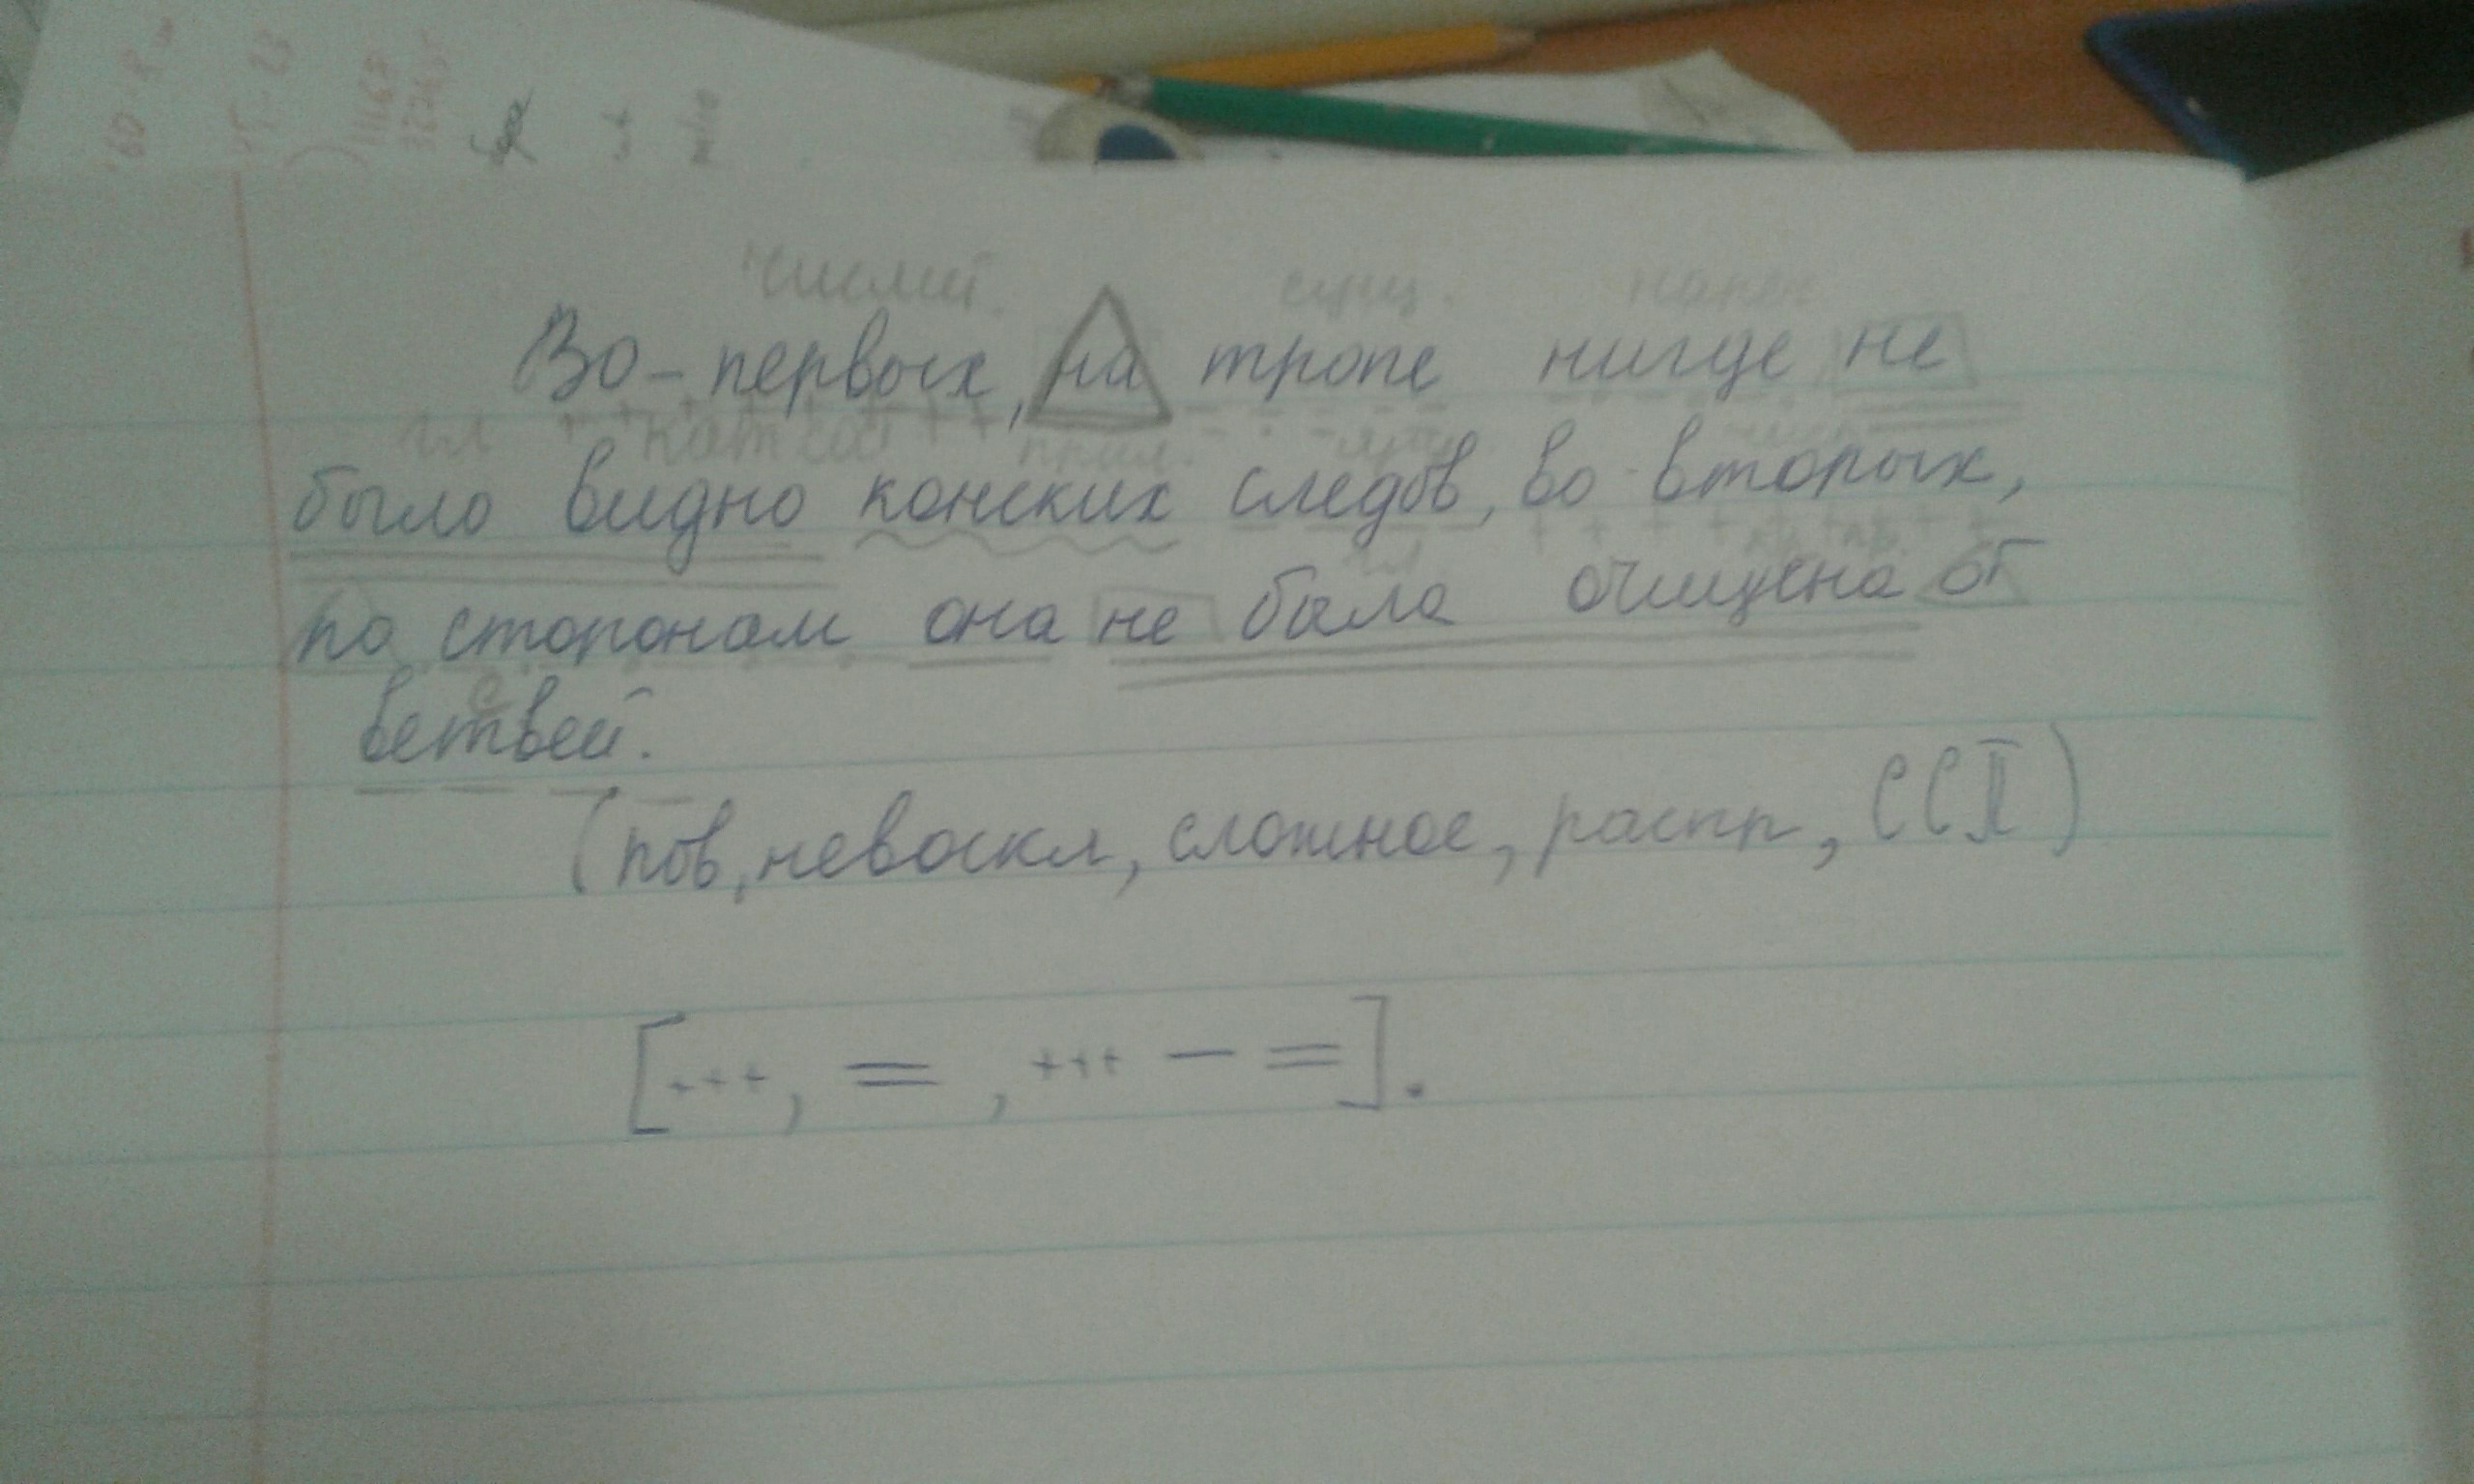 числит. сущ. нареч
Во-первых, на тропе нигде не
гл кат сос прил. сущ.
было видно конских следов, во-вторых,
гл кр. пр.
по сторонам она не была очищена от
с
ветвей.
(пов, невоскл, сложное, распр, ССП)
[+++, = , +++ — =].